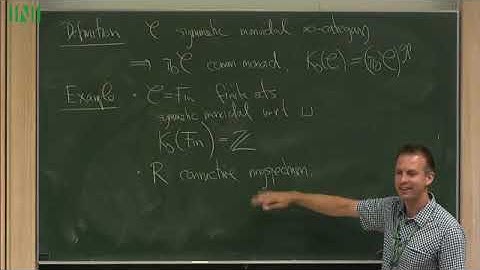 INI
Definition C symmetric monoidal ∞-category
⇒ π₀C comm monoid, K₀(C) = (π₀C)^gp
Example • C = Fin finite sets
symmetric monoidal w.r.t ⊔
K₀(Fin) = ℤ
• R connective ringspectrum.